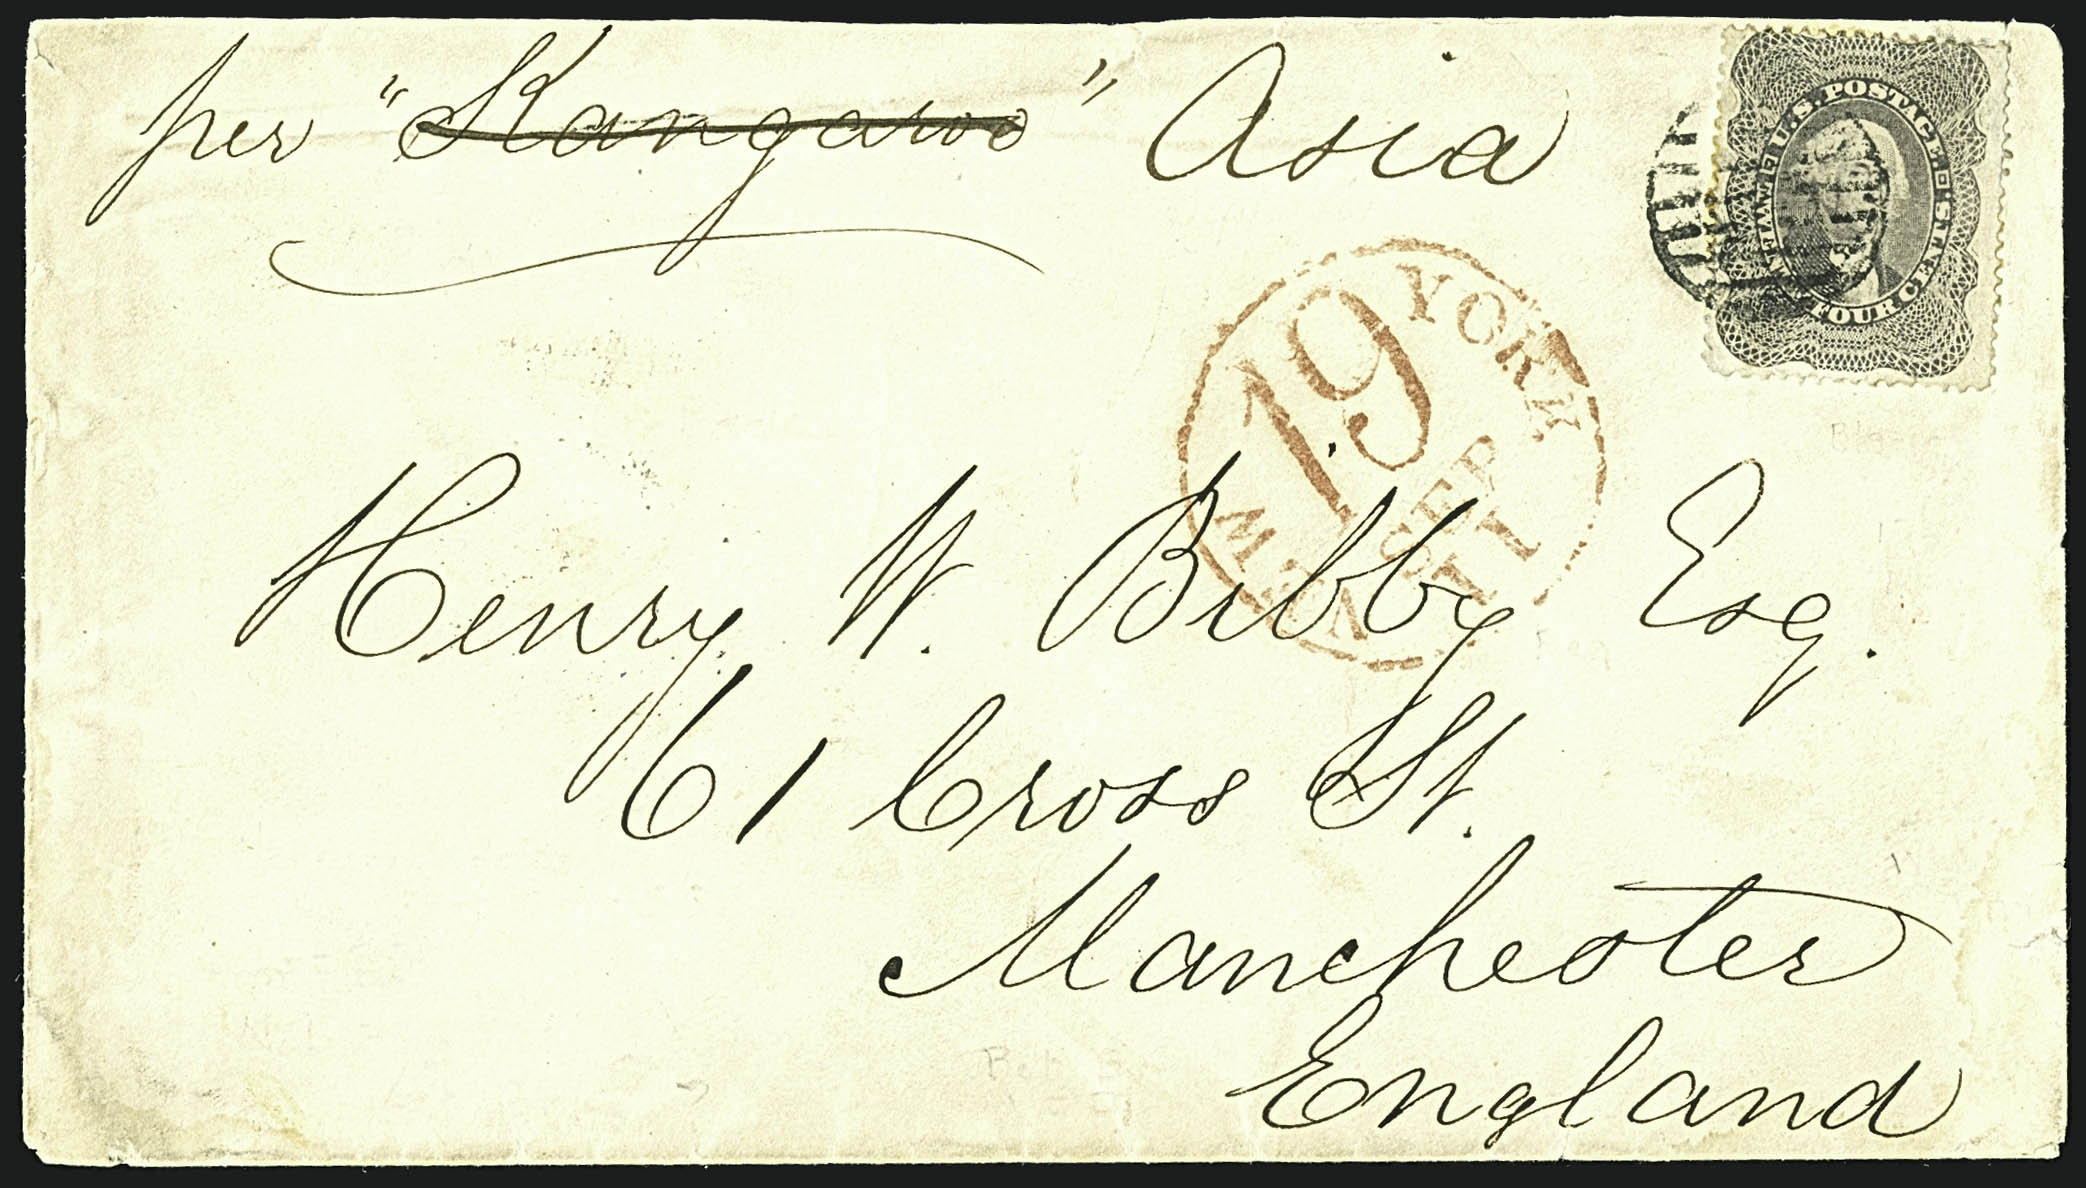 per "Kangaroo" Asia
U.S. POSTAGE
TWENTY FOUR CENTS
NEW YORK
19
SEP
11
Henry W. Bibby Esq.
61 Cross St.
Manchester
England